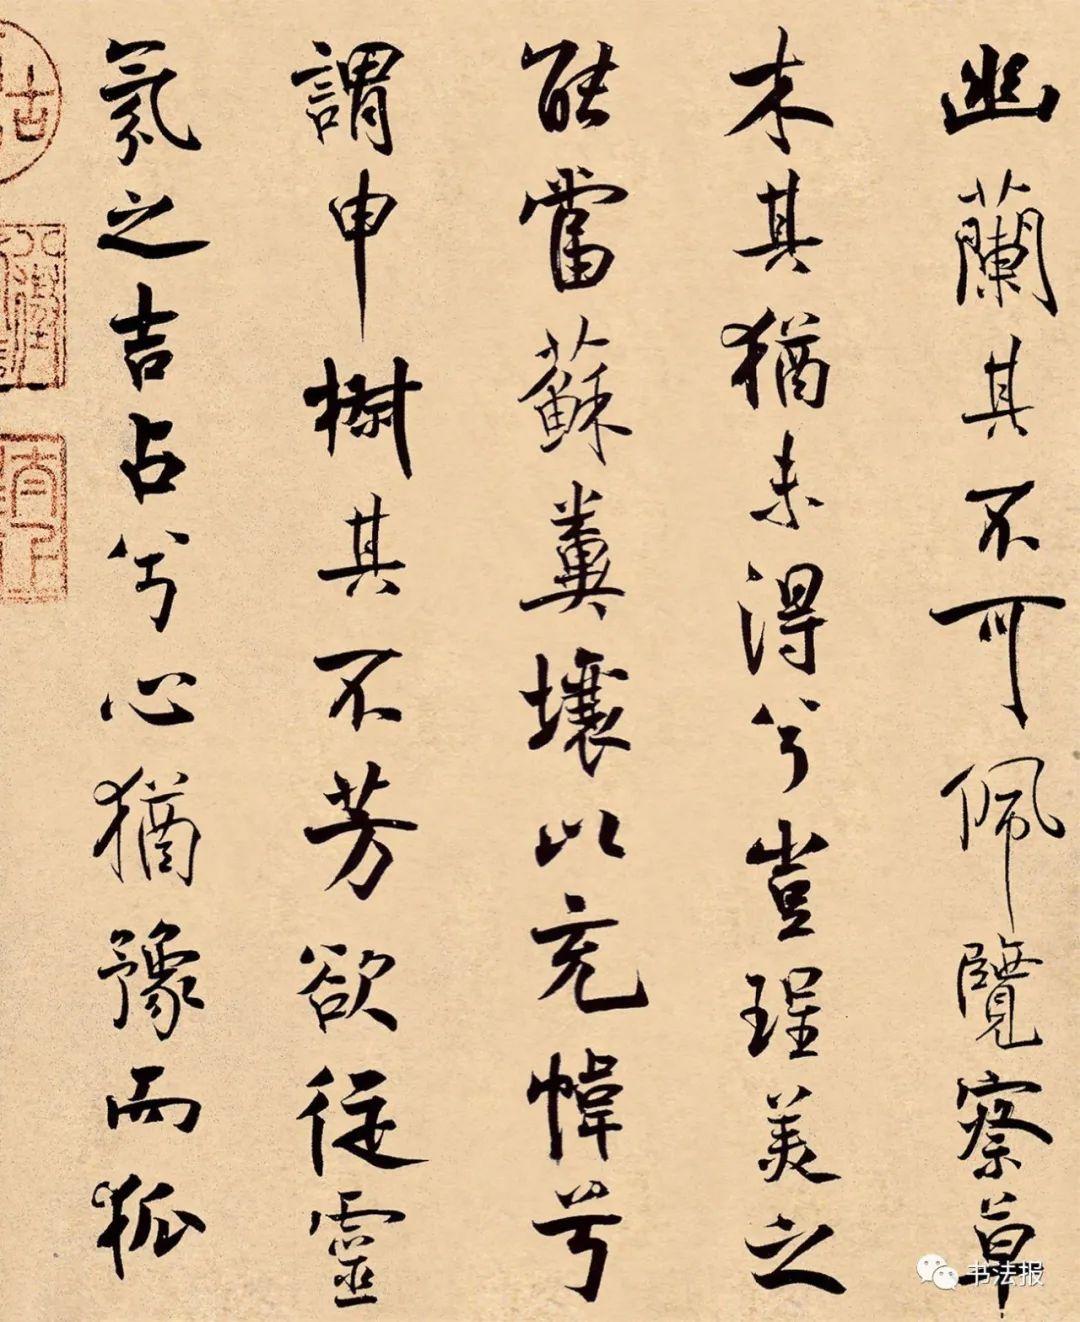 幽蘭其不可佩覽察草
木其猶未得兮豈珵美之
能當蘇糞壤以充幃兮
謂申椒其不芳欲從靈
氛之吉占兮心猶豫而狐
书法报